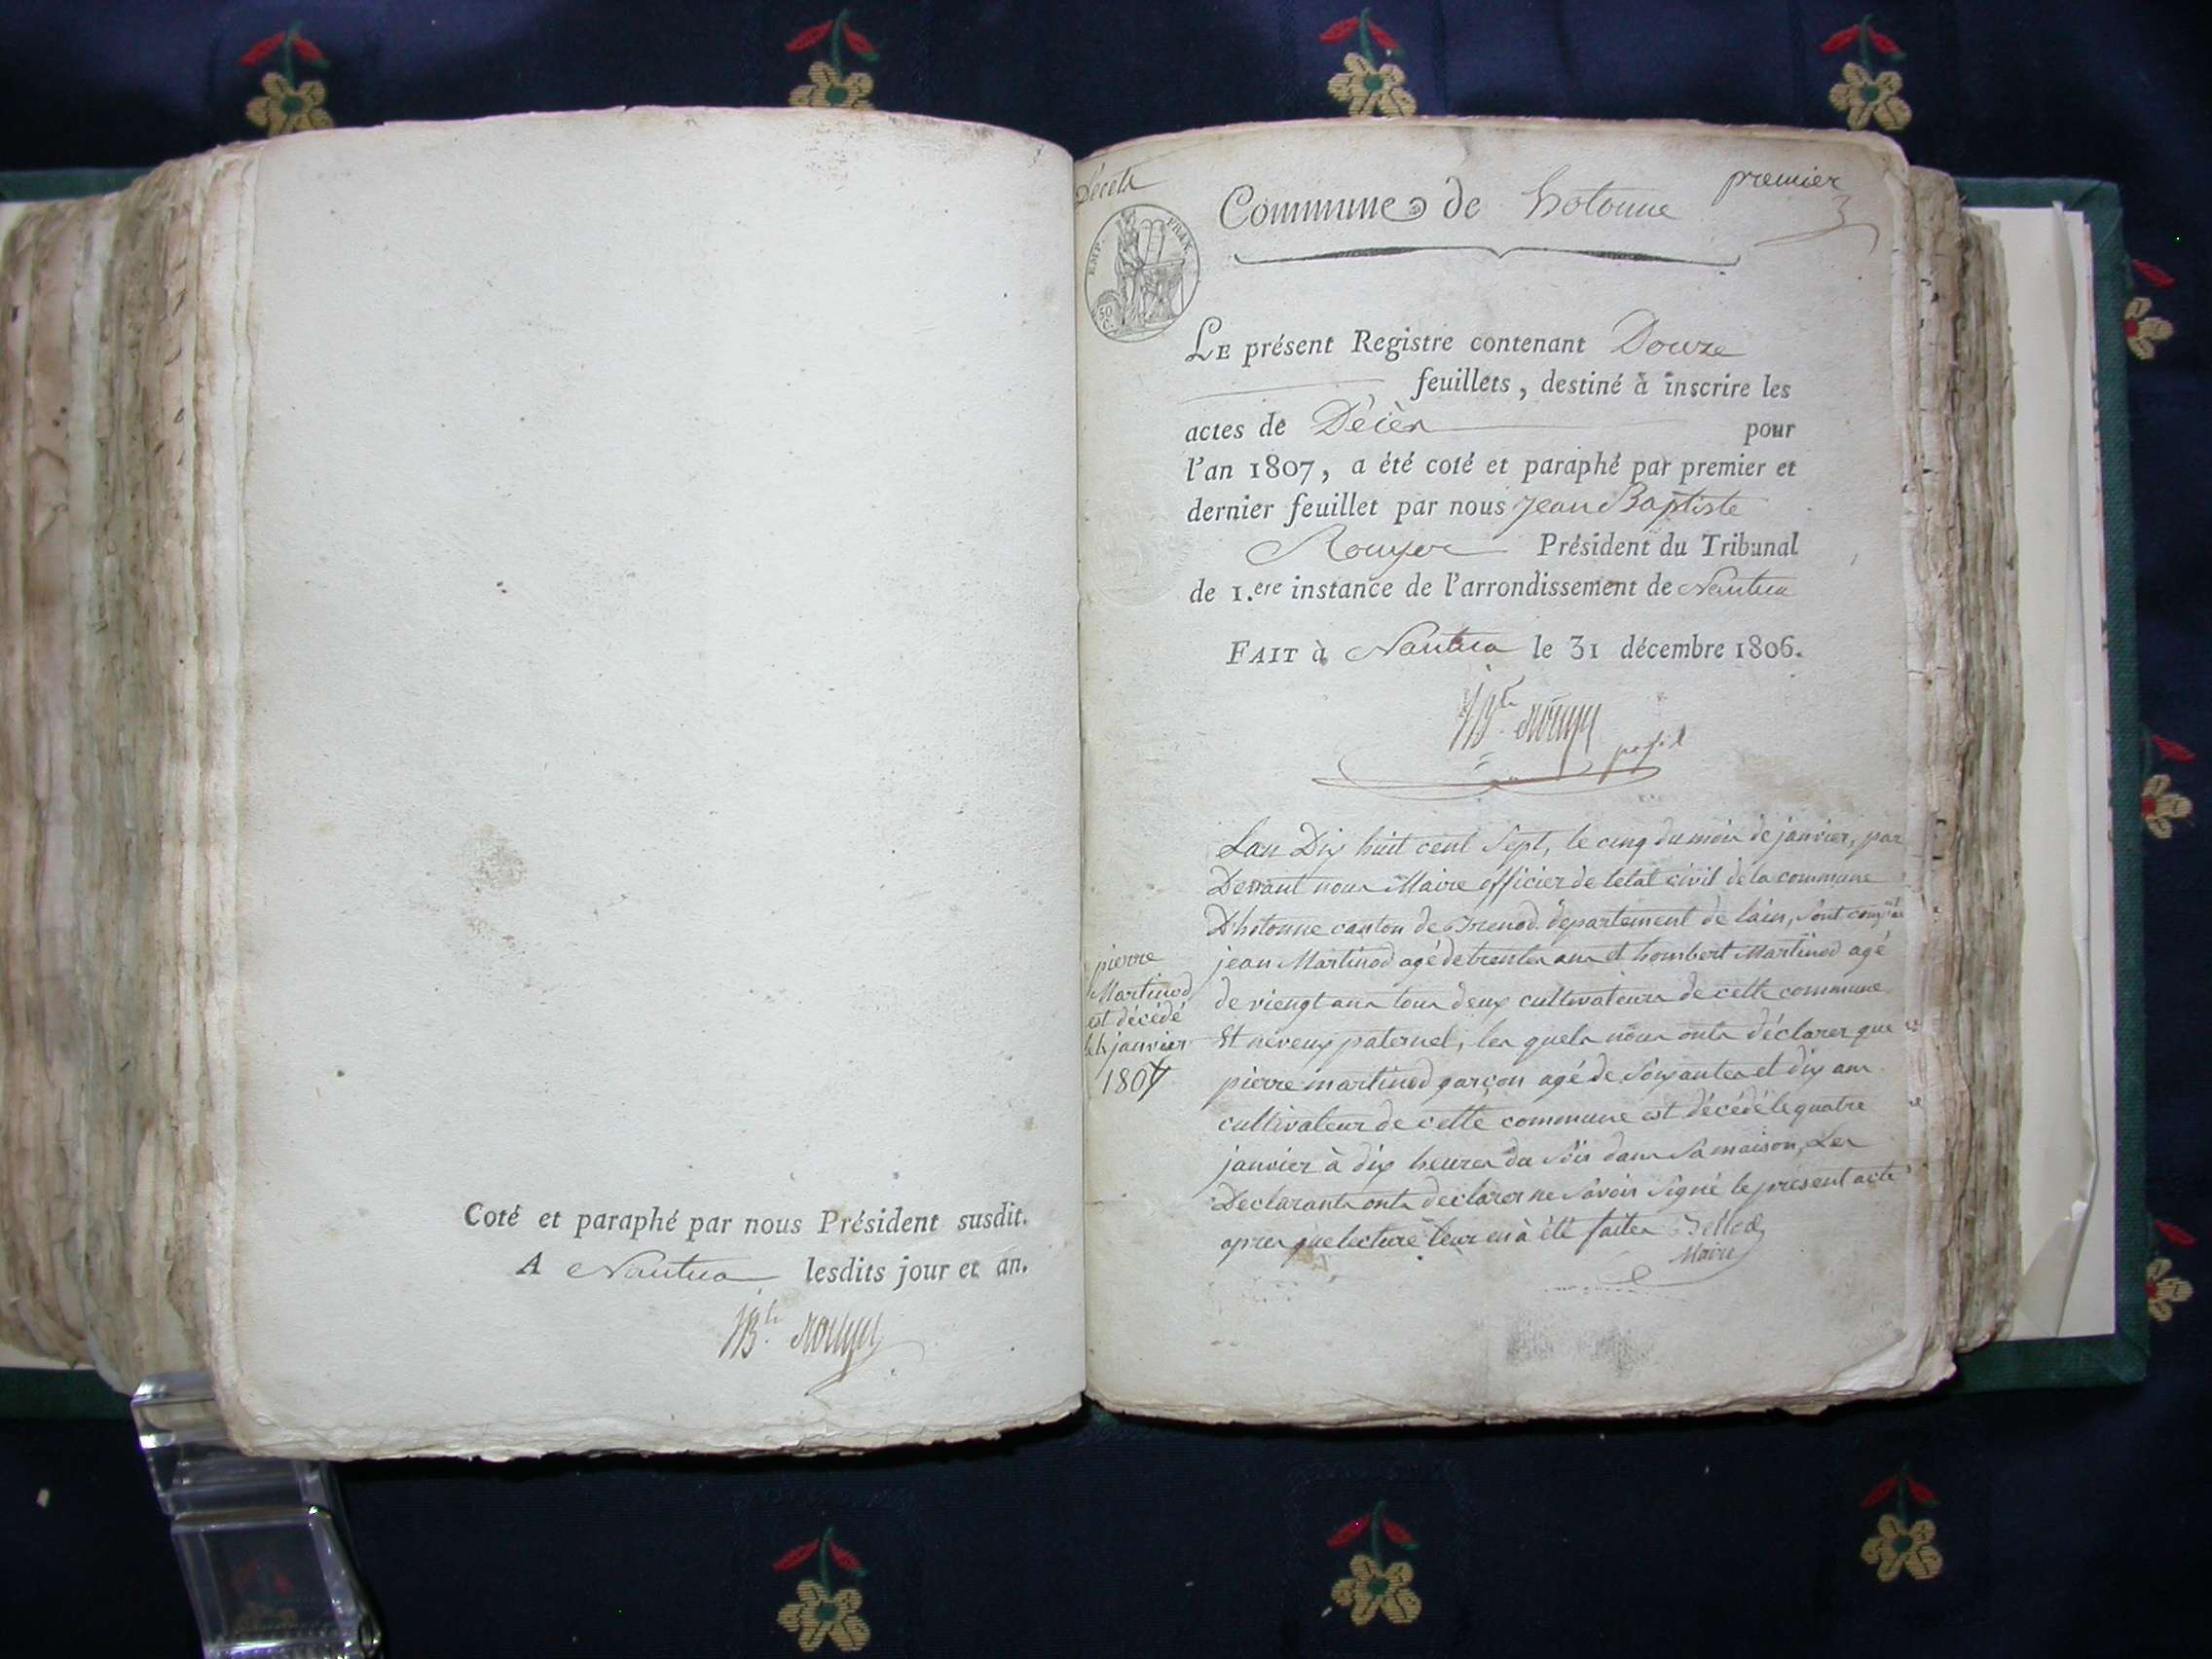 Coté et paraphé par nous Président susdit.
A Nantua lesdits jour et an.
JBte Rouyer
Décès
Commune de hotonne
premier
EMP. FRAN.
50
C.
LE présent Registre contenant Douze
feuillets, destiné à inscrire les
actes de Décès pour
l'an 1807, a été coté et paraphé par premier et
dernier feuillet par nous Jean Baptiste
Rouyer Président du Tribunal
de 1.ere instance de l'arrondissement de Nantua
FAIT à Nantua le 31 décembre 1806.
JBte Rouyer
pierre
Martinod
est décédé
le 4 janvier
1807
Lan Dix huit cent Sept, le cinq du mois de janvier, par
Devant nous Maire officier de letat civil de la commune
D'hotonne canton de Brenod departement de lain, Sont
jean Martinod agé de trentes ans et hombert Martinod agé
de viengt ans tous deux cultivateurs de cette commune
Et neveux paternel, les quels nous onts déclarer que
pierre martinod garçon agé de Soixantes et dix ans
cultivateur de cette commune est décédé le quatre
janvier à dix heures du Soir dans Sa maison, Les
Declarants onts declarer ne Savoir Signé le present acte
apres que lecture leur en à été faites
Maire